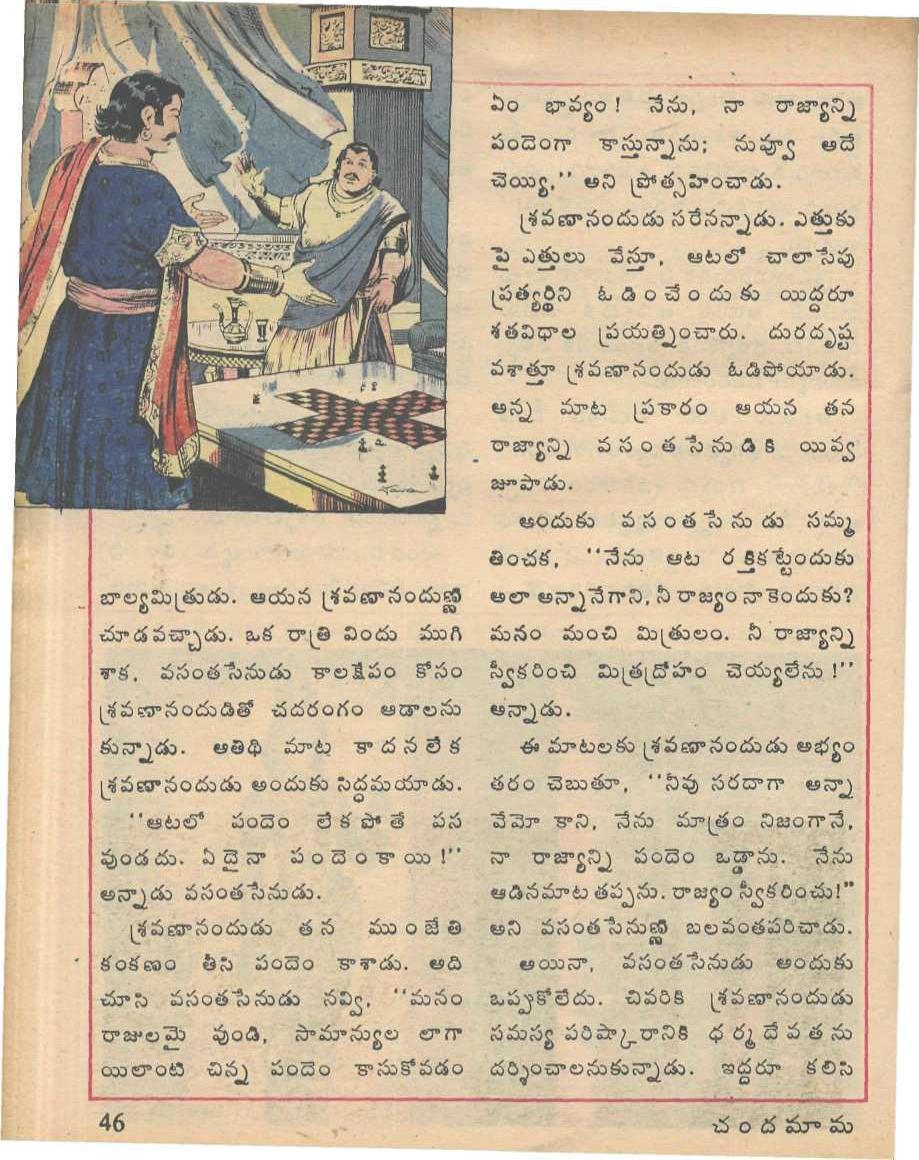 బాల్యమిత్రుడు. ఆయన శ్రవణానందుణ్ణి
చూడవచ్చాడు. ఒక రాత్రి విందు ముగి
శాక, వసంతసేనుడు కాలక్షేపం కోసం
శ్రవణానందుడితో చదరంగం ఆడాలను
కున్నాడు. అతిథి మాట కాదనలేక
శ్రవణానందుడు అందుకు సిద్ధమయాడు.
‘‘ఆటలో పందెం లేకపోతే పస
వుండదు. ఏదైనా పందెంకాయి!’’
అన్నాడు వసంతసేనుడు.
శ్రవణానందుడు తన ముంజేతి
కంకణం తీసి పందెం కాశాడు. అది
చూసి వసంతసేనుడు నవ్వి, ‘‘మనం
రాజులమై వుండి, సామాన్యుల లాగా
యిలాంటి చిన్న పందెం కాసుకోవడం
ఏం భావ్యం! నేను, నా రాజ్యాన్ని
పందెంగా కాస్తున్నాను; నువ్వూ అదే
చెయ్యి,’’ అని ప్రోత్సహించాడు.
శ్రవణానందుడు సరేనన్నాడు. ఎత్తుకు
పై ఎత్తులు వేస్తూ, ఆటలో చాలాసేపు
ప్రత్యర్థిని ఓడించేందుకు యిద్దరూ
శతవిధాల ప్రయత్నించారు. దురదృష్ట
వశాత్తూ శ్రవణానందుడు ఓడిపోయాడు.
అన్న మాట ప్రకారం ఆయన తన
రాజ్యాన్ని వసంతసేనుడికి యివ్వ
జూపాడు.
అందుకు వసంతసేనుడు సమ్మ
తించక, ‘‘నేను ఆట రక్తికట్టేందుకు
అలా అన్నానేగాని, నీ రాజ్యం నాకెందుకు?
మనం మంచి మిత్రులం. నీ రాజ్యాన్ని
స్వీకరించి మిత్రద్రోహం చెయ్యలేను!’’
అన్నాడు.
ఈ మాటలకు శ్రవణానందుడు అభ్యం
తరం చెబుతూ, ‘‘నీవు సరదాగా అన్నా
వేమో కాని, నేను మాత్రం నిజంగానే,
నా రాజ్యాన్ని పందెం ఒడ్డాను. నేను
ఆడినమాట తప్పను. రాజ్యం స్వీకరించు!”
అని వసంతసేనుణ్ణి బలవంతపరిచాడు.
అయినా, వసంతసేనుడు అందుకు
ఒప్పుకోలేదు. చివరికి శ్రవణానందుడు
సమస్య పరిష్కారానికి ధర్మదేవతను
దర్శించాలనుకున్నాడు. ఇద్దరూ కలిసి
46
చందమామ